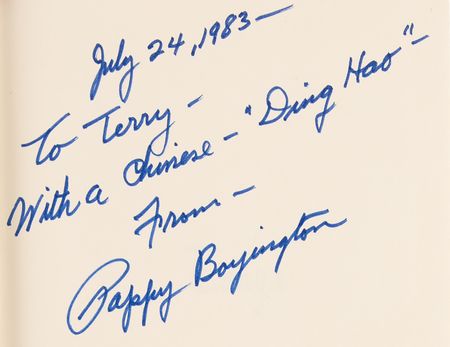 July 24, 1983—
To Terry—
With a Chinese—"Ding Hao"—
From—
Pappy Boyington